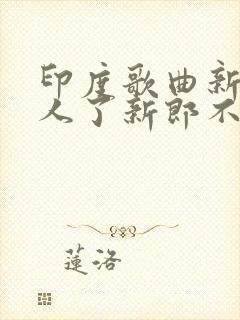 印度歌曲新
人了新郎不
蓮洛